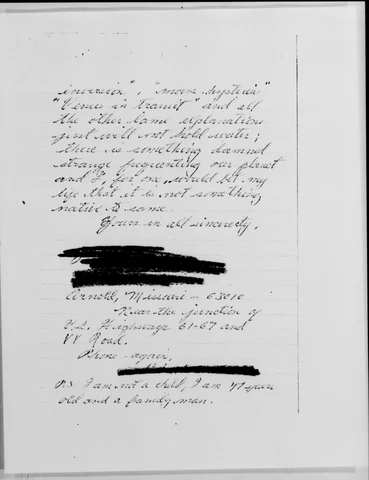 inversion", "mass hysteria"
"Venus in transit" and all
the other lame explanations
just will not hold water;
there is something damned
strange frequenting our planet
and I, for one, would bet my
life that it is not something
native to same.
Yours in all sincerity,
Arnold, Missouri - 63010
Near the junction of
U.S. Highways 61-67 and
Road.
Phone again,
P.S. I am not a child, I am 47 years
old and a family man.